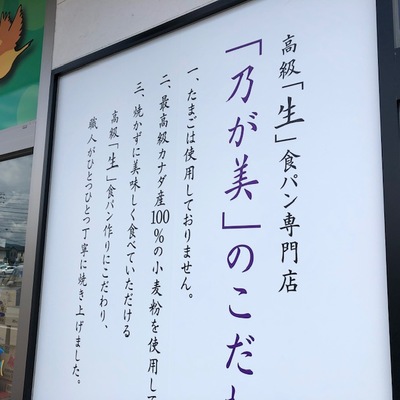 高級「生」食パン専門店
「乃が美」のこだ
一、たまごは使用しておりません。
二、最高級カナダ産100%の小麦粉を使用して
三、焼かずに美味しく食べていただける
高級「生」食パン作りにこだわり、
職人がひとつひとつ丁寧に焼き上げました。